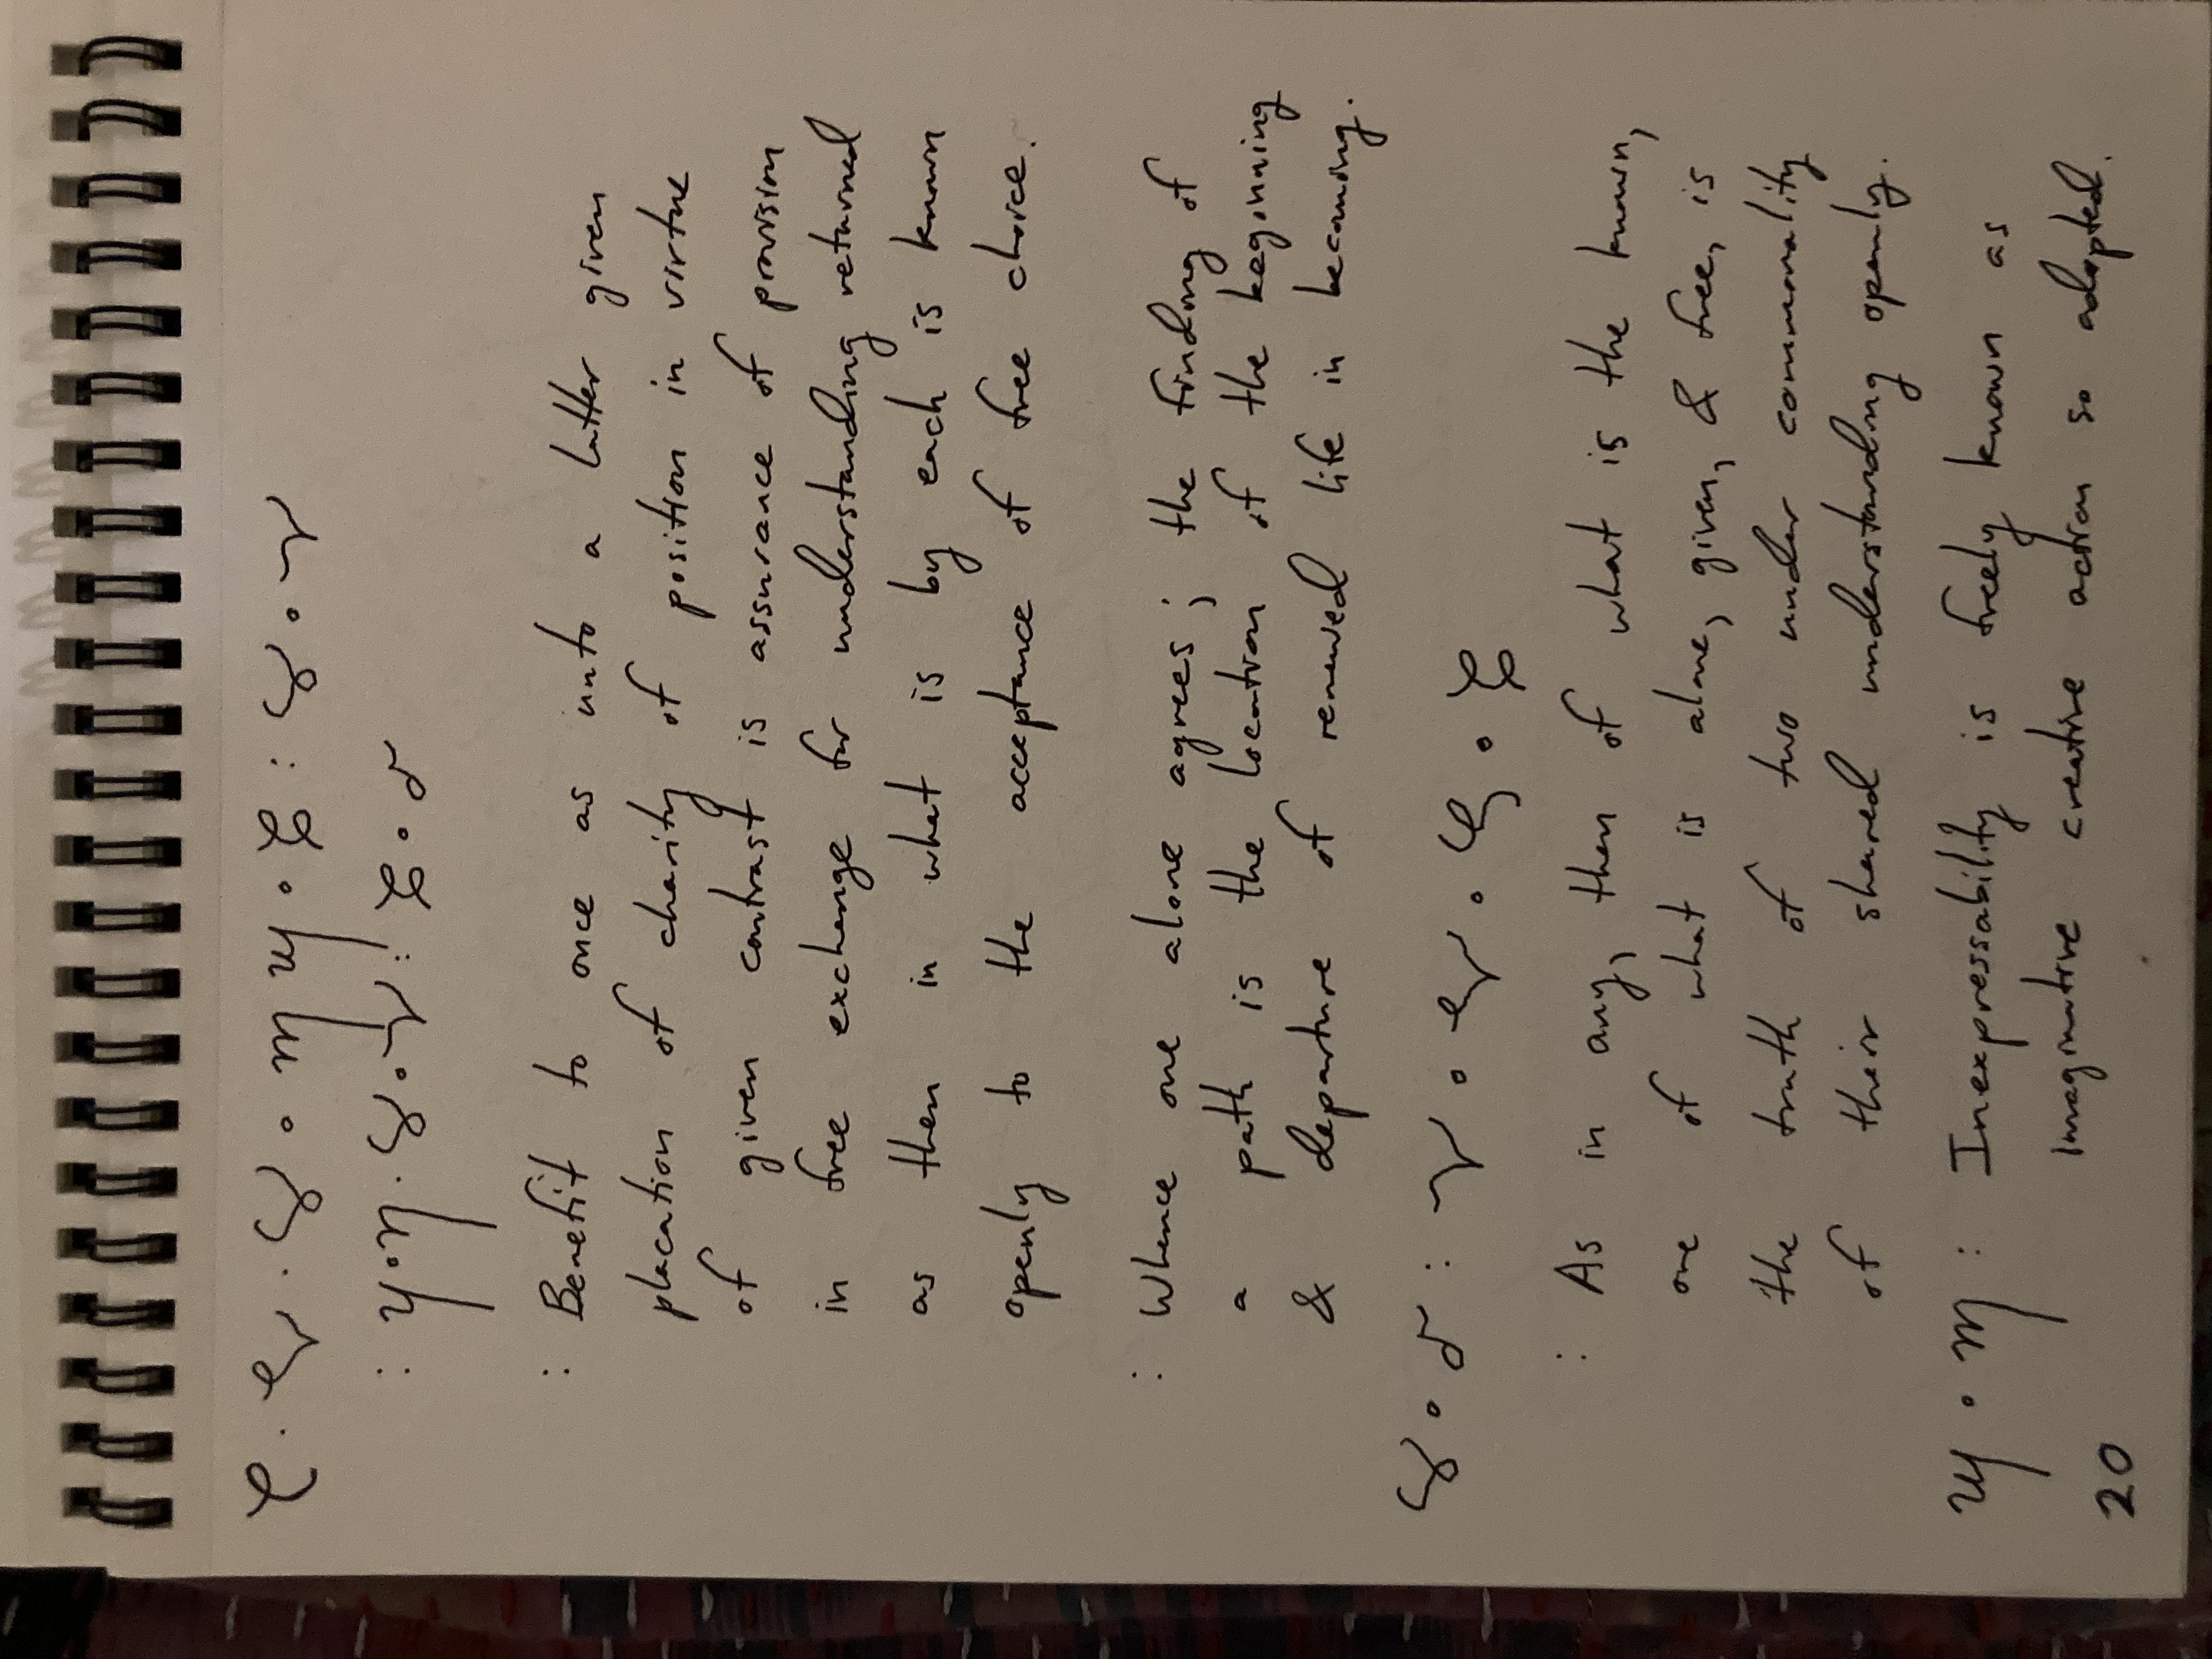 : Benefit to once as unto a latter given
placation of charity of position in virtue
of given contrast is assurance of provision
in free exchange for understanding returned
as then in what is by each is known
openly to the acceptance of free choice.
: Whence one alone agrees; the finding of
a path is the location of the beginning
& departure of renewed life in becoming.
: As in any, then of what is the known,
one of what is alone, given, & free, is
the truth of two under commonality
of their shared understanding openly.
: Inexpressability is freely known as
imaginative creative action so adopted.
20